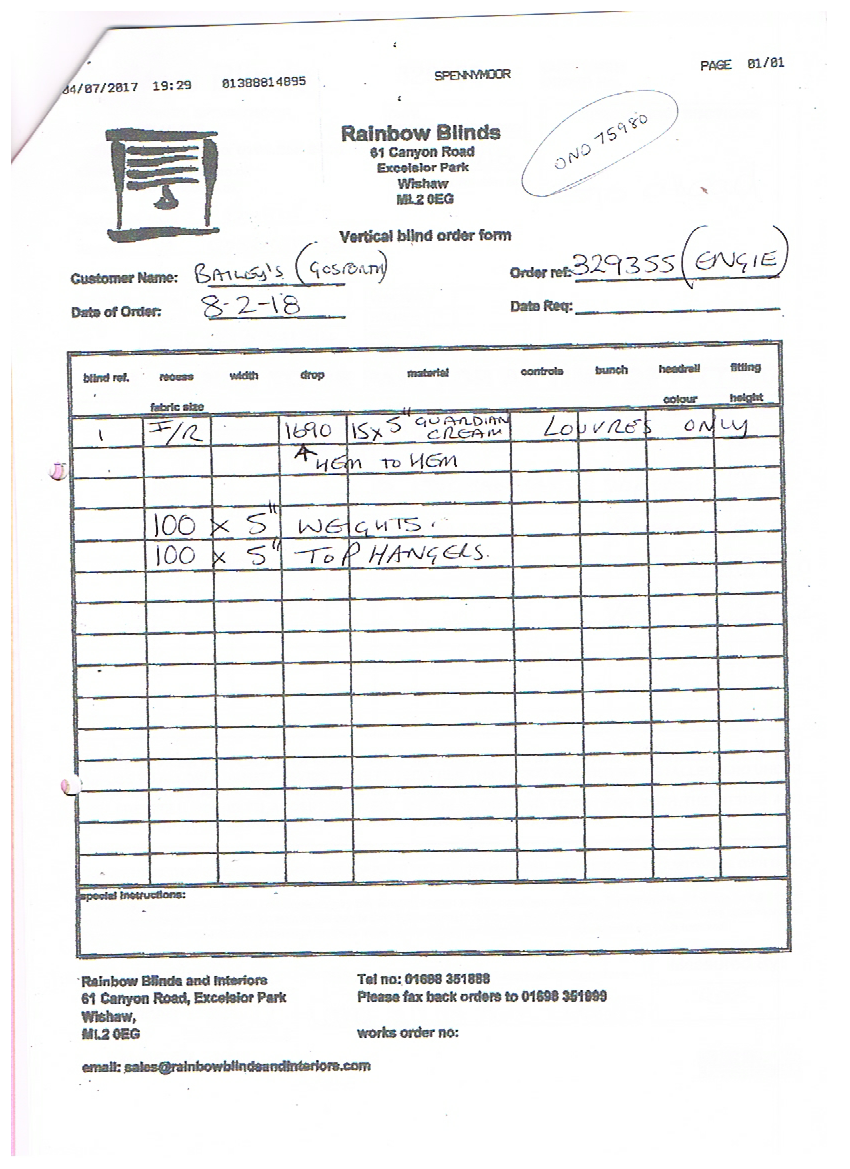 04/07/2017 19:29 01388814895 SPENNYMOOR PAGE 01/01
ONO 75980
Rainbow Blinds
61 Canyon Road
Excelsior Park
Wishaw
ML2 0EG
Vertical blind order form
Customer Name: BAILEY'S (GOSFORTH) Order ref: 329355 (ENGIE)
Date of Order: 8-2-18 Date Req:
blind ref. recess width drop material controls bunch headrail fitting
fabric size colour height
1 I/R 1690 15x5" GUARDIAN CREAM LOUVRES ONLY
HEM TO HEM
100 x 5" WEIGHTS.
100 x 5" TOP HANGERS.
special instructions:
Rainbow Blinds and Interiors Tel no: 01698 351888
61 Canyon Road, Excelsior Park Please fax back orders to 01698 351999
Wishaw,
ML2 0EG works order no:
email: sales@rainbowblindsandinteriors.com